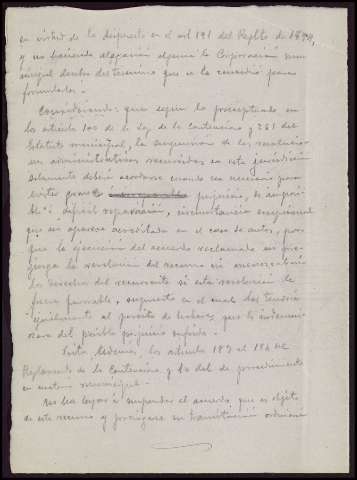 en virtud de lo dispuesto en el art 191 del Regltº de 1894,
y no haciendo alegación alguna la Corporación mu-
nicipal dentro del termino que se la concedio para
formularlas.
Considerando: que segun lo preceptuado en
los articulos 100 de la Ley de lo Contencioso y 261 del
Estatuto municipal, la suspension de las resoluciones
administrativas recurridas en esta jurisdiccion
solamente deberá acordarse cuando sea necesario para
evitar graves perjuicios, de imposi-
ble ó dificil reparación, circunstancia excepcional
que no aparece acreditada en el caso de autos, por-
que la ejecución del acuerdo reclamado no pre-
juzga la resolucion del recurso ni
los derechos del recurrente si esta resolucion le
fuera favorable, supuesto en el cual los tendria
igualmente al percibo de haberes que le indemni-
zara del posible perjuicio sufrido.
Visto además, los articulos 183 al 184 del
Reglamento de lo Contencioso y de procedimiento
en materia municipal.
No ha lugar á suspender el acuerdo que es objeto
de este recurso y prosigase su tramitación ordinaria